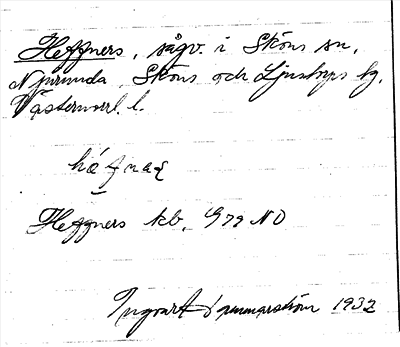 Heffners, sågv. i Sköns sn,
Njurunda, Sköns och Ljustorps tg,
Västernorrl. l.
Heffners kb, G 79 NO
Ingvart Hammarström 1932